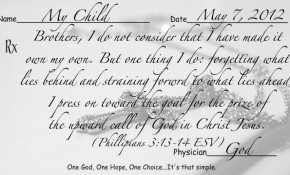 Name My Child Date May 7, 2012
Rx Brothers, I do not consider that I have made it
own my own. But one thing I do: forgetting what
lies behind and straining forward to what lies ahead,
I press on toward the goal for the prize of
the upward call of God in Christ Jesus.
(Phillipians 3:13-14 ESV)
Physician God
One God, One Hope, One Choice...It's that simple.